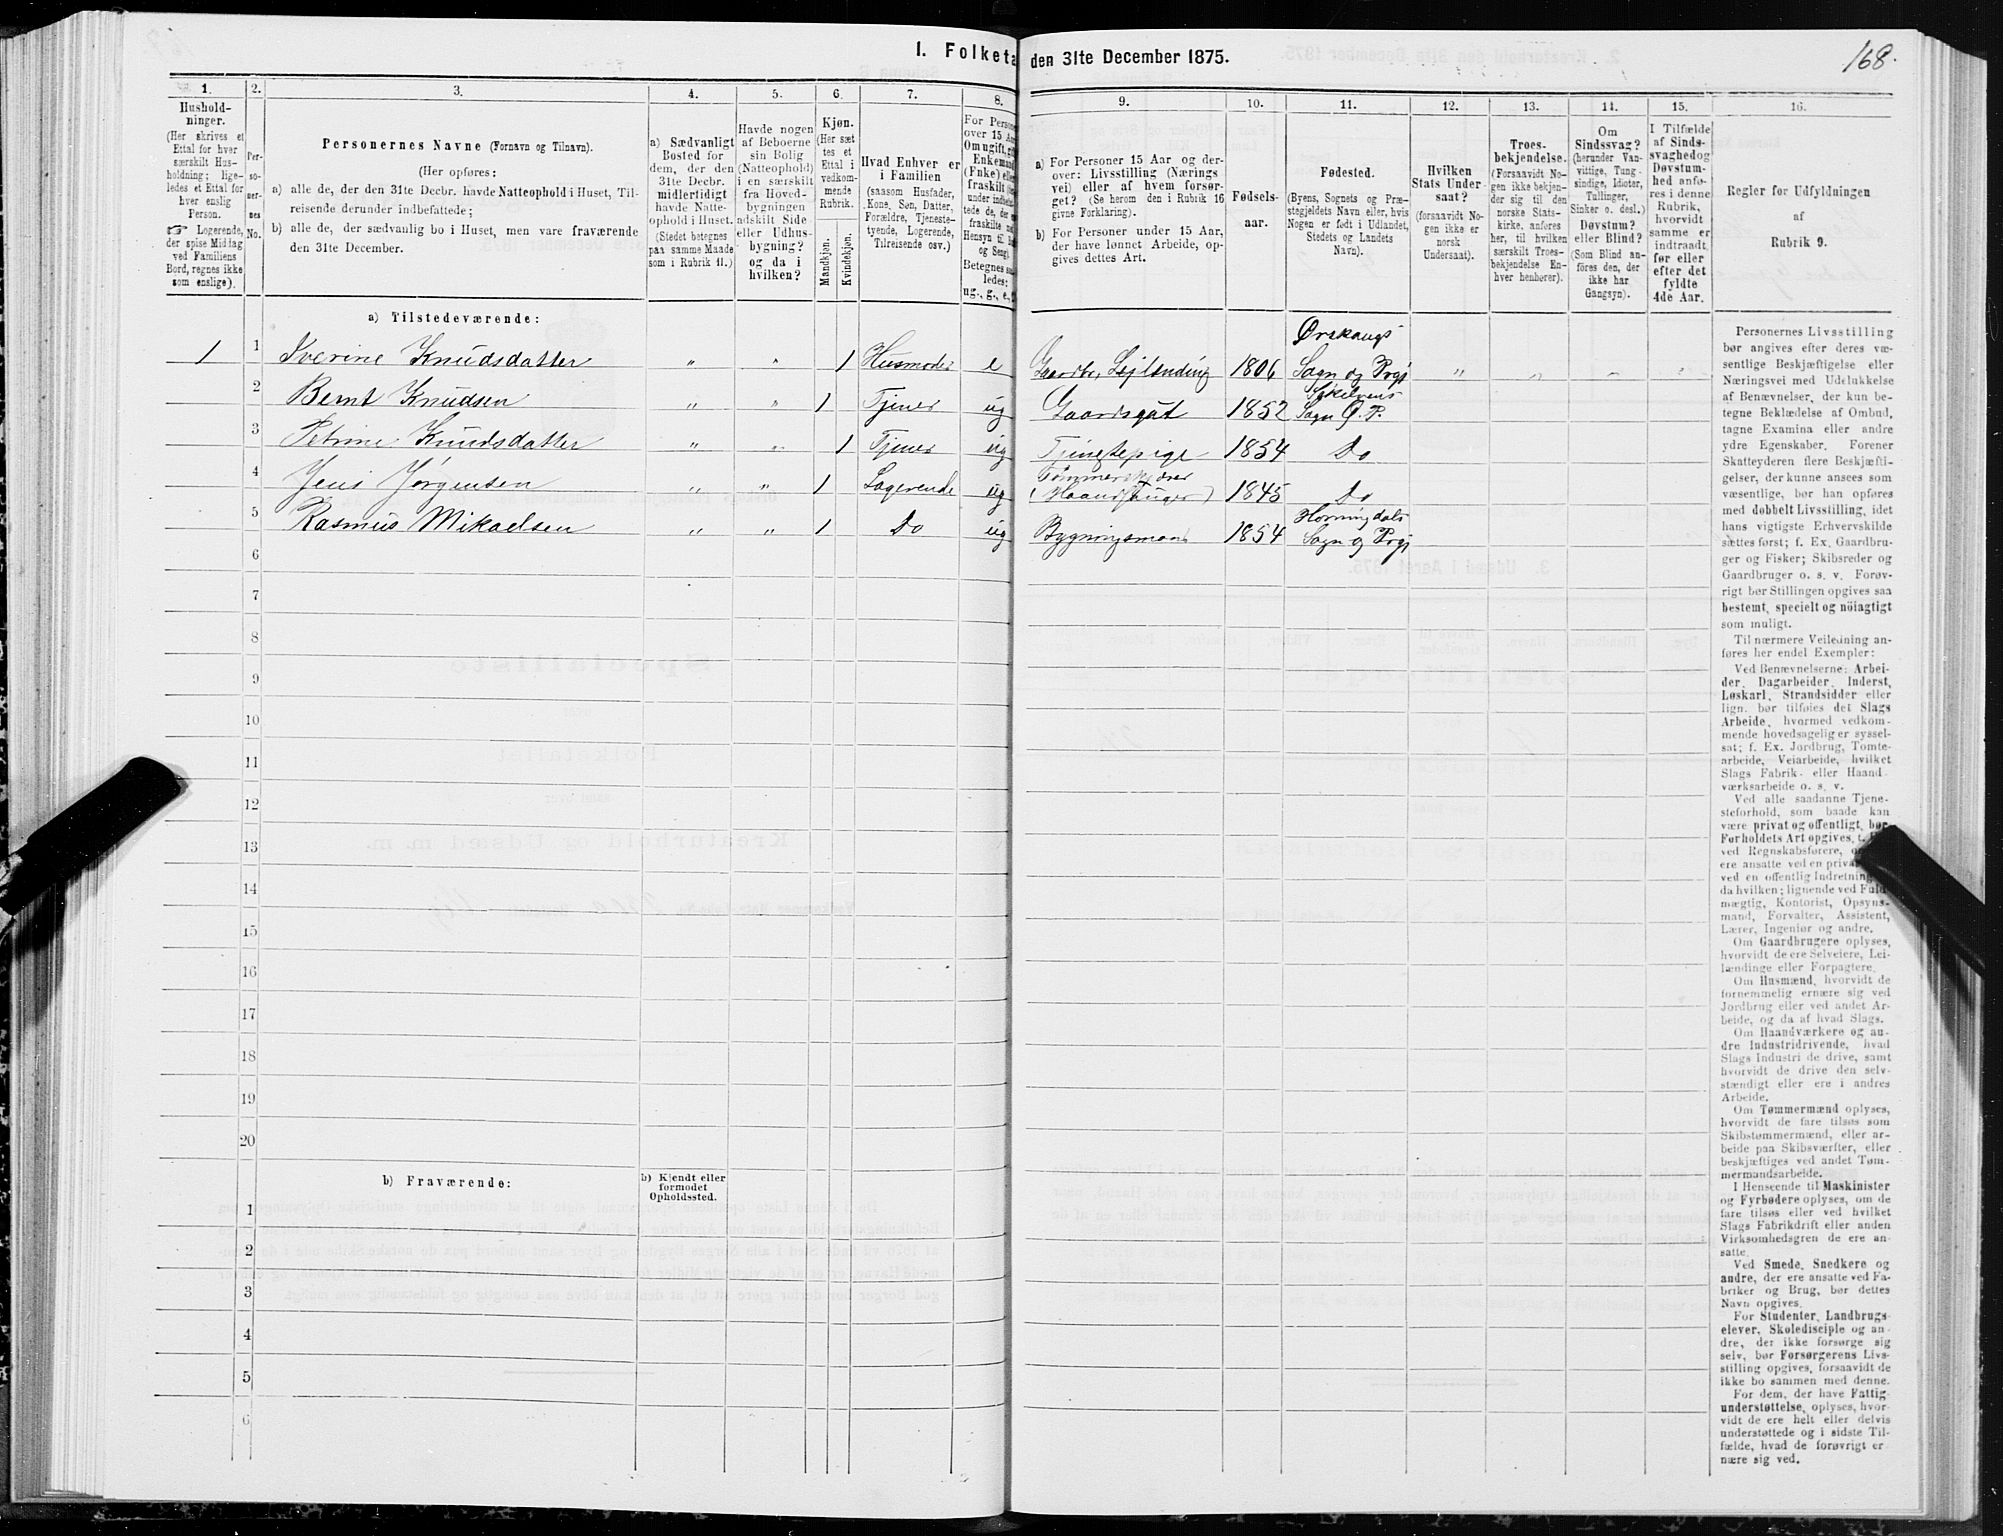 168.
I. Folketa
den 31te December 1875.
1.
Hushold-
ninger.
(Her skrives et
Ettal for hver
særskilt Hus-
holdning; lige-
ledes et Ettal for
hver enslig
Person.
☞ Logerende,
der spise Middag
ved Familiens
Bord, regnes ikke
som enslige).
2.
Per-
so-
ner-
nes
No.
3.
Personernes Navne (Fornavn og Tilnavn).
(Her opføres:
a) alle de, der den 31te Decbr. havde Natteophold i Huset, Til-
reisende derunder indbefattede;
b) alle de, der sædvanlig bo i Huset, men vare fraværende
den 31te December.
4.
a) Sædvanligt
Bosted for
dem, der den
31te Decbr.
midlertidigt
havde Natte-
ophold i Huset.
(Stedet betegnes
paa samme Maade
som i Rubrik 11.)
5.
Havde nogen
af Beboerne
sin Bolig
(Natteophold)
i en særskilt
fra Hoved-
bygningen
adskilt Side-
eller Udhus-
bygning?
og da i
hvilken?
6.
Kjøn.
(Her sæt-
tes et
Ettal i
vedkom-
mende
Rubrik.
Mandkjøn.
Kvindekjøn.
7.
Hvad Enhver er
i Familien
(saasom Husfader,
Kone, Søn, Datter,
Forældre, Tjeneste-
tyende, Logerende,
Tilreisende osv.)
8.
For Person
over 15 Aa
Om ugift, gi
Enkemand
(Enke) elle
fraskilt
Hensyn til
og Seng).
Betegnes
ledes:
ug., g., e.,
9.
a) For Personer 15 Aar og der-
over: Livsstilling (Nærings
vei) eller af hvem forsør-
get? (Se herom den i Rubrik 16
givne Forklaring).
b) For Personer under 15 Aar,
der have lønnet Arbeide, op-
gives dettes Art.
10.
Fødsels-
aar.
11.
Fødested.
(Byens, Sognets og Præ-
stegjeldets Navn eller, hvis
Nogen er født i Udlandet,
Stedets og Landets
Navn).
12.
Hvilken
Stats Under-
saat?
(forsaavidt No-
gen ikke er
norsk
Undersaat).
13.
Troes-
bekjendelse.
(Forsaavidt No-
gen ikke bekjen-
der sig til den
norske Stats-
kirke, anføres
her, til hvilken
særskilt Troes-
bekjendelse En-
hver henhører).
14.
Om
Sindssvag?
(herunder Van-
vittige, Tung-
sindige, Idioter,
Tullinger,
Sinker o. desl.)
Døvstum?
eller Blind?
(Som Blind an-
føres den, der
ikke har
Gangsyn).
15.
I Tilfælde
af Sinds-
svaghed og
Døvstum-
hed anfø-
res i denne
Rubrik,
hvorvidt
samme er
indtraadt
før eller
efter det
fyldte
4de Aar.
16.
Regler for Udfyldningen
af
Rubrik 9.
a) Tilstedeværende:
1 1 Iverine Knudsdatter " " 1 Husmoder e Gaardbr, Lejlending 1806 Ørskougs Sogn og Prgj " " " "
2 Bernt Knudsen " " 1 Tjener ug Gaardsgut 1852 Søkelvens Sogn Ø. P.
3 Petrine Knudsdatter " " 1 Tjener ug Tjenestepige 1854 Do
4 Jens Jørgensen " " 1 Logerende ug 1845 Do
5 Rasmus Mikaelsen " " 1 Do ug Bygningsmand 1854 Horningdals Sogn og Prgj
6
7
8
9
10
11
12
13
14
15
16
17
18
19
20
b) Fraværende:
b) Kjendt eller
formodet
Opholdssted.
1
2
3
4
5
6
Personernes Livsstilling
bør angives efter deres væ-
sentlige Beskjæftigelse eller
Næringsvei med Udelukkelse
af Benævnelser, der kun be-
tegne Beklædelse af Ombud,
tagne Examina eller andre
ydre Egenskaber. Forener
Skatteyderen flere Beskjæfti-
gelser, der kunne ansees som
væsentlige, bør han opføres
med dobbelt Livsstilling, idet
hans vigtigste Erhvervskilde
sættes først; f. Ex. Gaardbru-
ger og Fisker; Skibsreder og
Gaardbruger o. s. v. Forøv-
rigt bør Stillingen opgives saa
bestemt, specielt og nöiagtigt
som muligt.
Til nærmere Veiledning an-
føres her endel Exempler:
Ved Benævnelserne: Arbei-
der, Dagarbeider, Inderst,
Løskarl, Strandsidder eller
lign. bør tilføies det Slags
Arbeide, hvormed vedkom-
mende hovedsagelig er syssel-
sat; f. Ex. Jordbrug, Tomte-
arbeide, Veiarbeide, hvilket
Slags Fabrik- eller Haand-
værksarbeide o. s. v.
Ved alle saadanne Tjene-
steforhold, som baade kan
være privat og offentligt, bør
Forholdets Art opgives,
ved Regnskabsførere,
ere ansatte ved en priva
ved en offentlig Indretning
da hvilken; lignende ved Fuld-
mægtig, Kontorist, Opsyns-
mand, Forvalter, Assistent,
Lærer, Ingeniør og andre.
Om Gaardbrugere oplyses,
hvorvidt de ere Selveiere, Lei-
lændinge eller Forpagtere.
Om Husmænd, hvorvidt de
fornemmelig ernære sig ved
Jordbrug eller ved andet Ar-
beide, og da af hvad Slags.
Om Haandværkere og an-
dre Industridrivende, hvad
Slags Industri de drive, samt
hvorvidt de drive den selv-
stændigt eller ere i andres
Arbeide.
Om Tømmermænd oplyses,
hvorvidt de fare tilsøs som
Skibstømmermænd, eller ar-
beide paa Skibsværfter, eller
beskjæftiges ved andet Tøm-
mermandsarbeide.
I Henseende til Maskinister
og Fyrbødere oplyses, om de
fare tilsøs eller ved hvilket
Slags Fabrikdrift eller anden
Virksomhedsgren de ere an-
satte.
Ved Smede, Snedkere og
andre, der ere ansatte ved Fa-
briker og Brug, bør dettes
Navn opgives.
For Studenter, Landbrugs-
elever, Skoledisciple og an-
dre, der ikke forsørge sig
selv, bør Forsørgerens Livs-
stilling opgives, forsaavidt de
ikke bo sammen med denne.
For dem, der have Fattig-
understøttelse, oplyses, hvor-
vidt de ere helt eller delvis
understøttede og i sidste Til-
fælde, hvad de forøvrigt er-
nære sig ved.